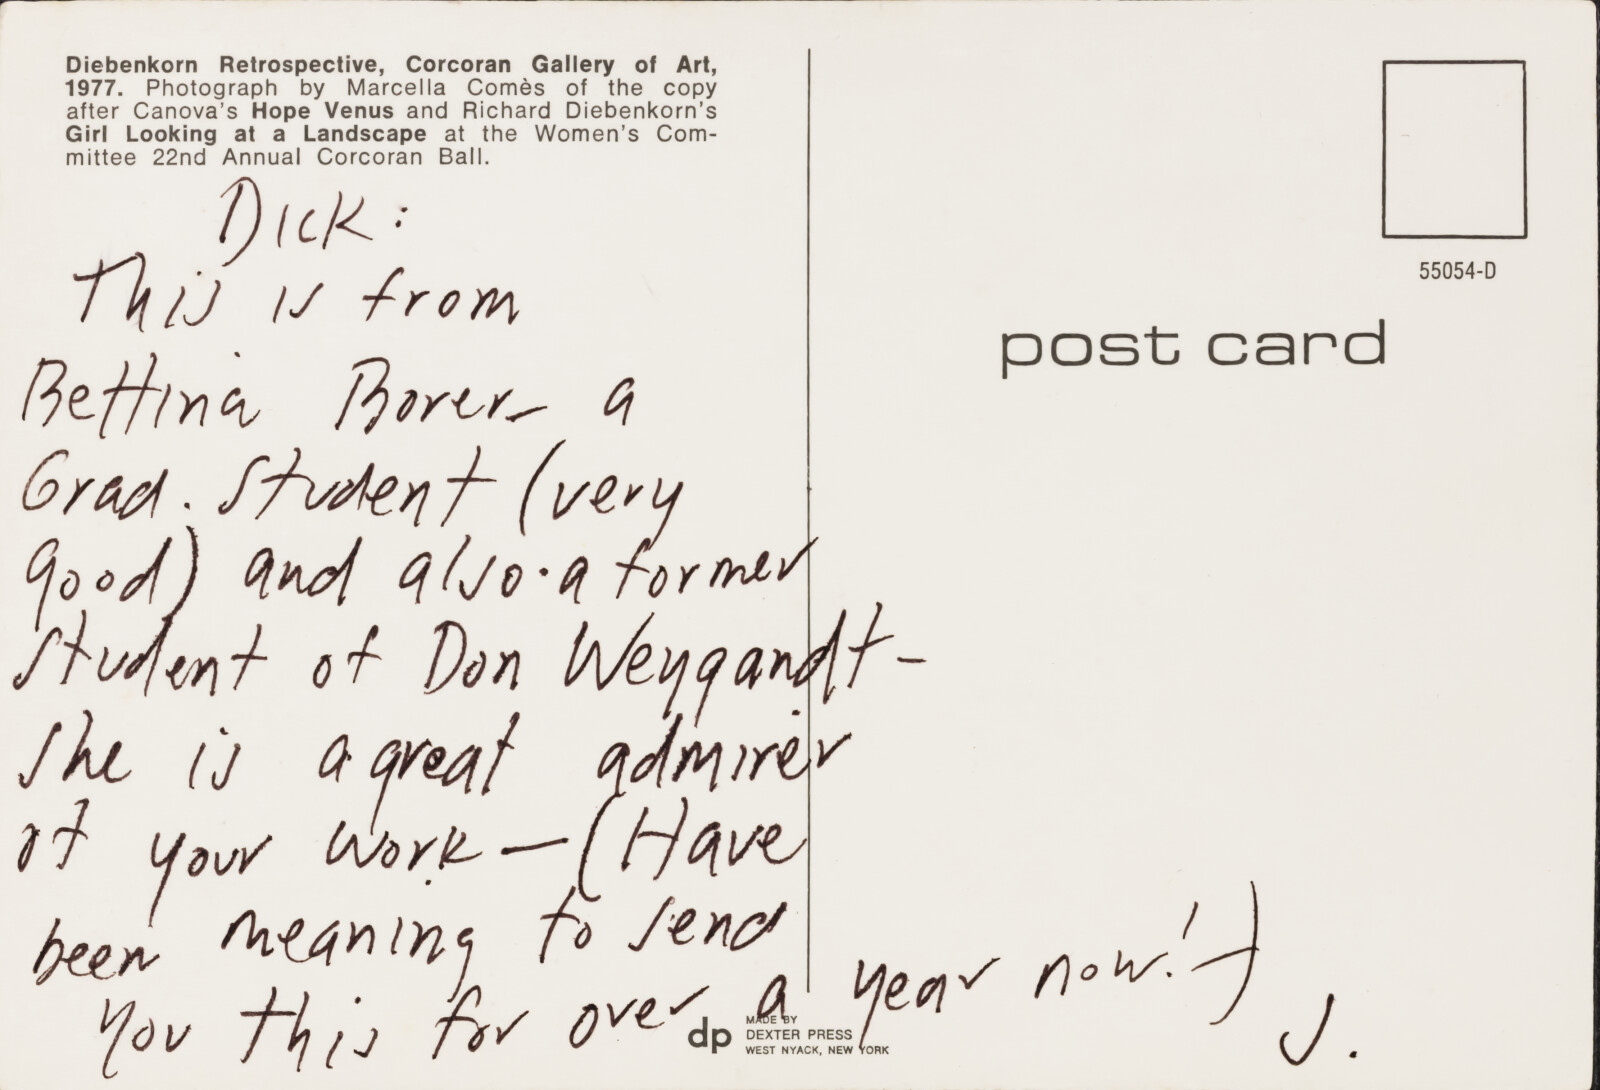 Diebenkorn Retrospective, Corcoran Gallery of Art,
1977. Photograph by Marcella Comès of the copy
after Canova's Hope Venus and Richard Diebenkorn's
Girl Looking at a Landscape at the Women's Com-
mittee 22nd Annual Corcoran Ball.
Dick:
This is from
Bettina Borer - a
Grad. Student (very
good) and also a former
student of Don Weygandt -
She is a great admirer
of your work — (Have
been meaning to send
you this for over a year now!)
J.
55054-D
post card
dp
MADE BY
DEXTER PRESS
WEST NYACK, NEW YORK